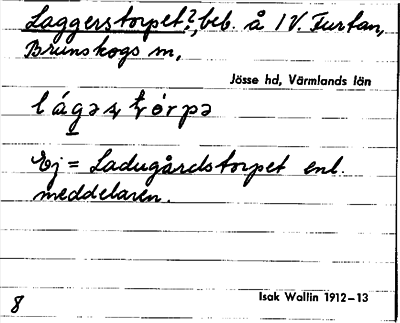 Laggerstorpet?, beb. å IV. Furtan,
Brunskogs sn,
Jösse hd, Värmlands län
lágəʂʈórpə
Ej = Ladugårdstorpet enl.
meddelaren.
8
Isak Wallin 1912–13